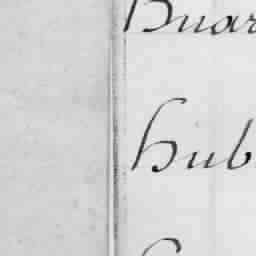 Buar
hub